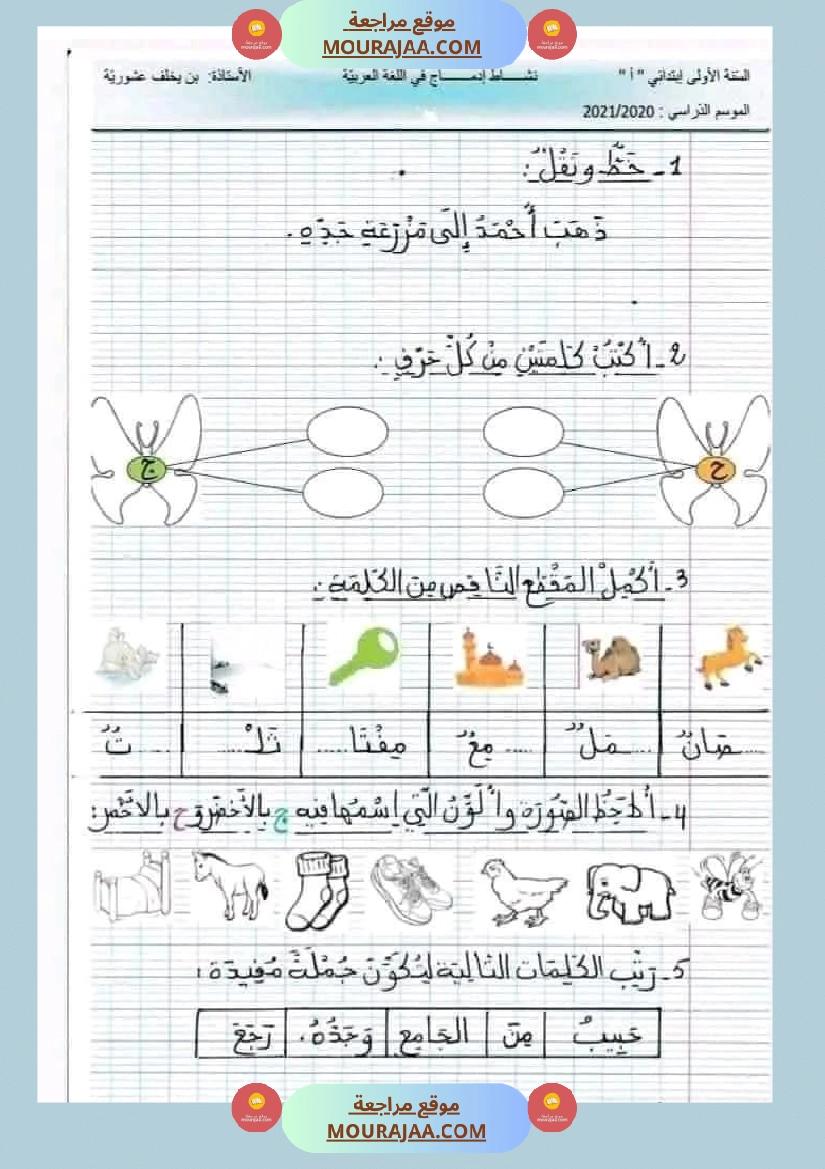 موقع مراجعة
MOURAJAA.COM
السّنة الأولى إبتدائي " أ " نشـــاط إدمـــــاج في اللغة العربيّة الأستاذة: بن يخلف عشوريّة
الموسم الدّراسي : 2021/2020
1 - خَطٌّ و نَقْلٌ :
ذَهَبَ أَحْمَدُ إِلَى مَزْرَعَةِ جَدِّهِ .
2 - أَكْتُبُ كَلِمَتَيْنِ مِنْ كُلِّ حَرْفٍ :
ح ج
3 - أُكْمِلُ المَقْطَع النَّاقِص مِنَ الكَلِمَةِ :
.....صَانٌ .....مَلٌ ..... مِعٌ مِفْتَا ..... ثَلْ..... ..... تٌ
4 - أُلَاحِظُ الصُّورَة و أُلَوِّنُ الَّتِي اِسْمُهَا فِيهِ ج بِالأَخْضَر وَ ح بِالأَحْمَر:
5 - رَتِّب الكَلِمَات التَّالِيَة لِتُكَوِّنَ جُمْلَةً مُفِيدَة :
حَبِيبٌ مِنَ الجَامِعِ وَجَدُّهُ . رَجَعَ
موقع مراجعة
MOURAJAA.COM